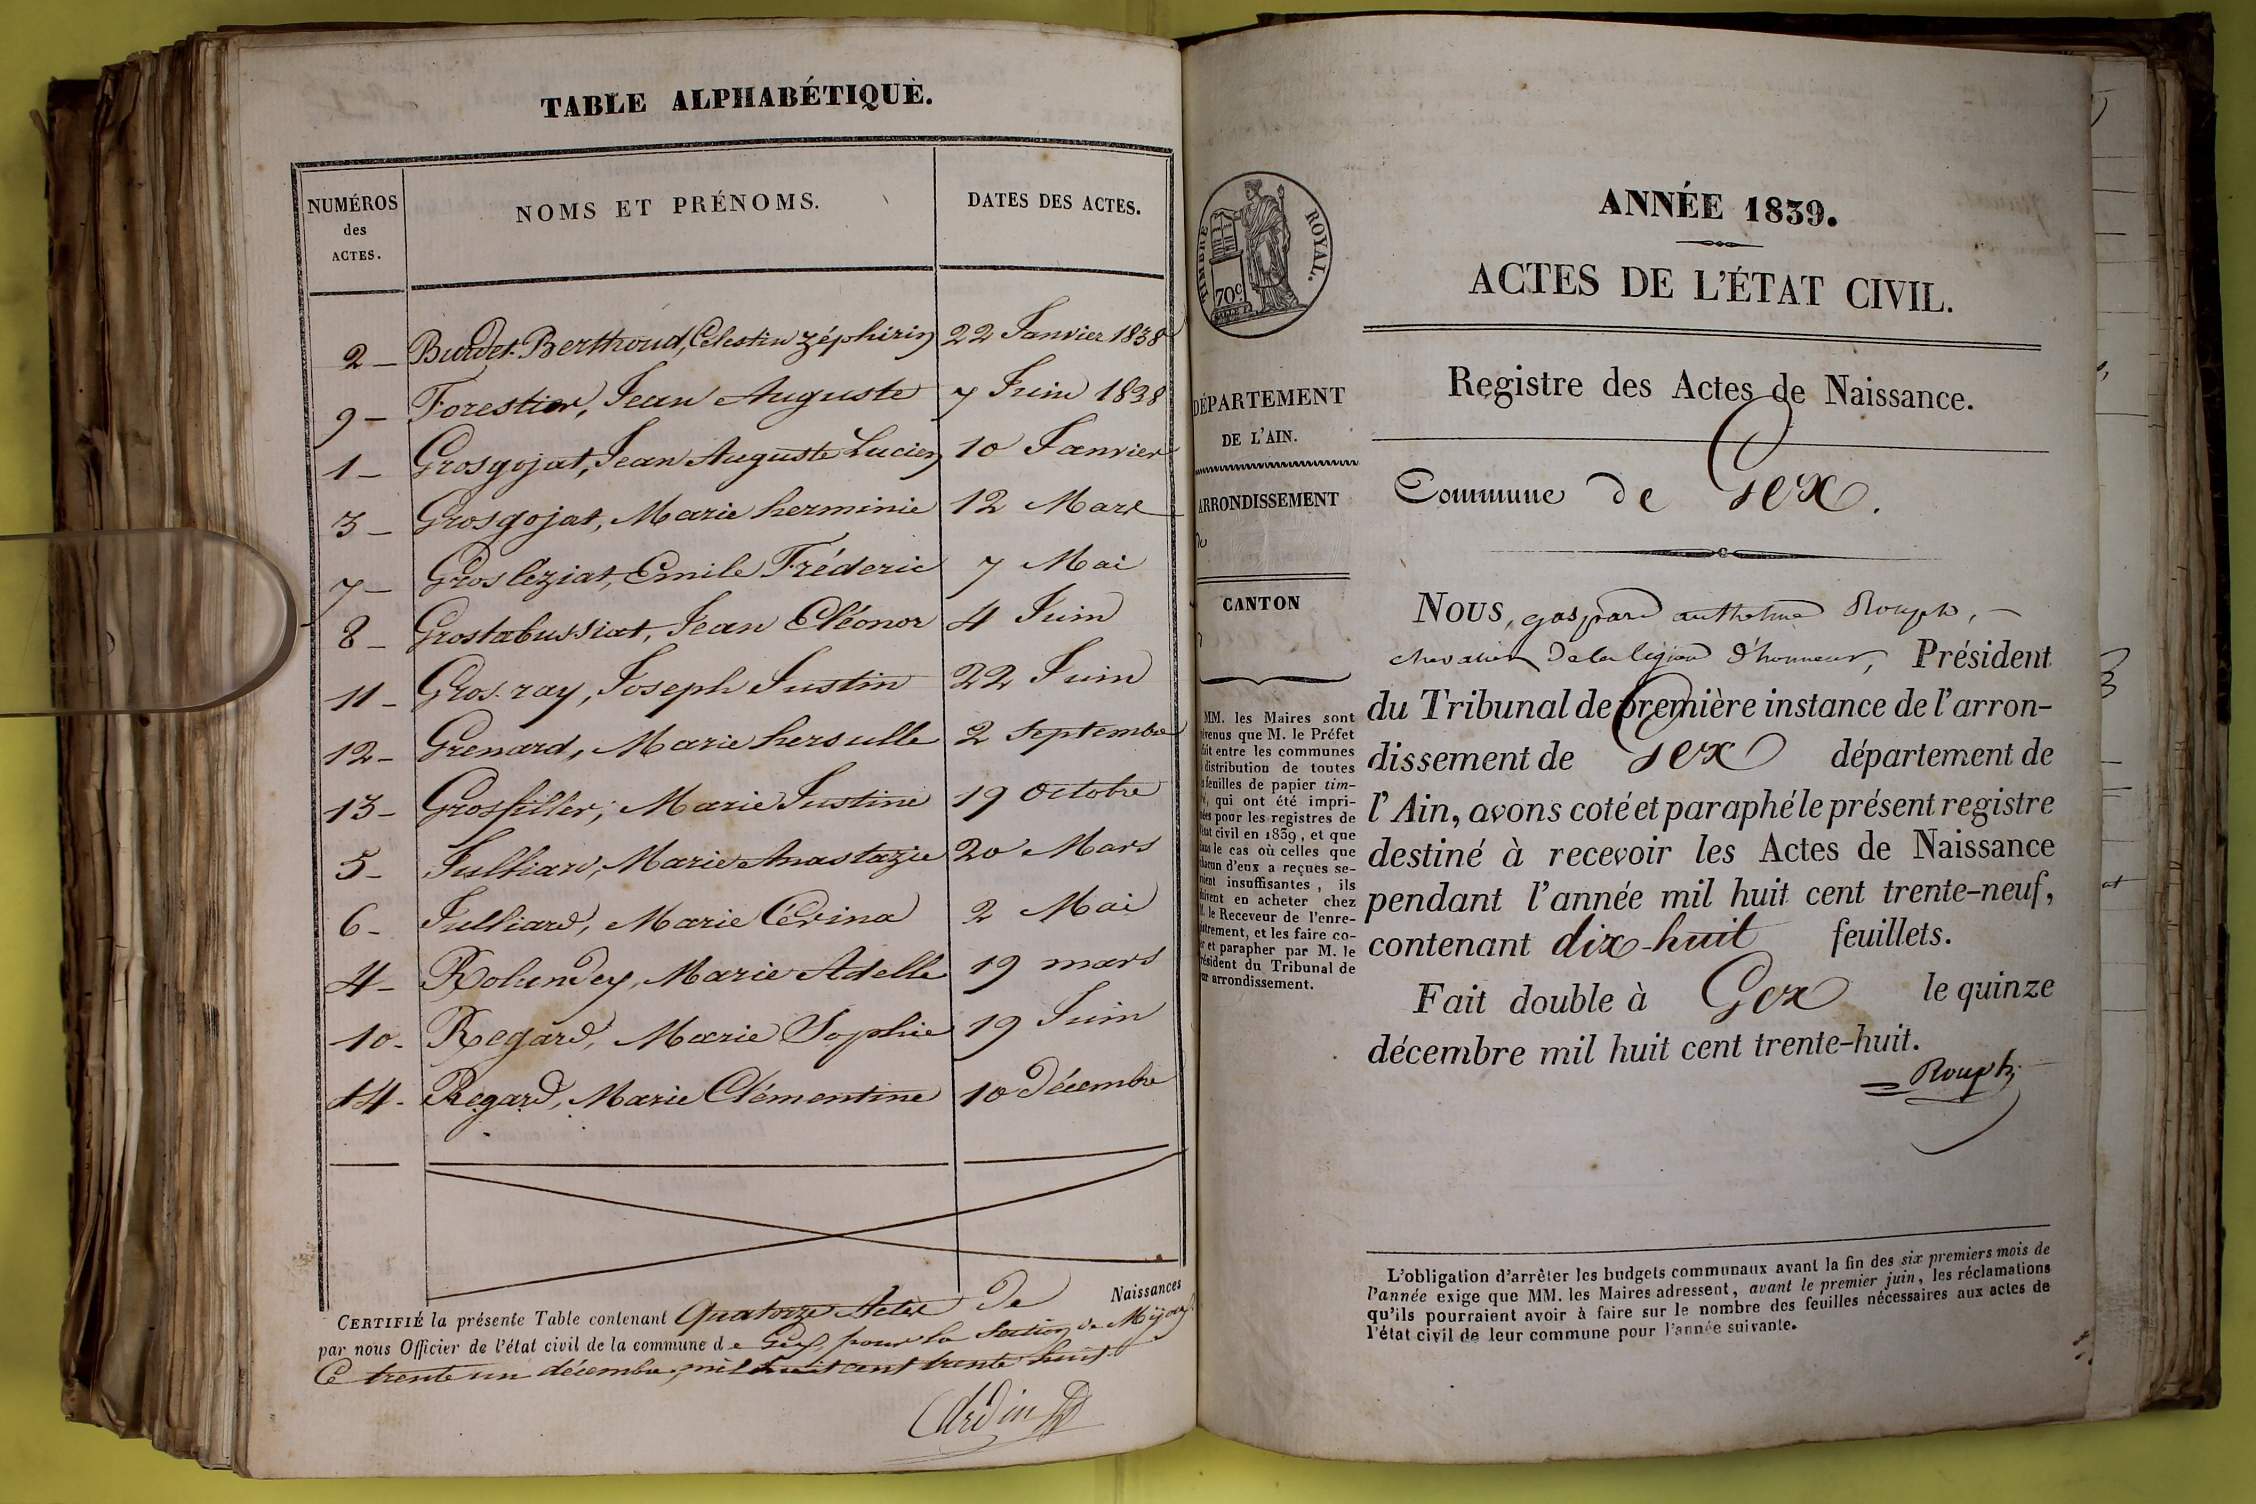 TABLE ALPHABÉTIQUE.
NUMÉROS des ACTES. NOMS ET PRÉNOMS. DATES DES ACTES.
2 – Burdet-Berthoud, Célestin zéphirin 22 Janvier 1838
9 – Forestier, Jean Auguste 7 Juin 1838
1 – Grosgojat, Jean Auguste Lucien 10 Janvier
3 – Grosgojat, Marie herminie 12 Mars
7 – Grosleziat, Emile Fréderic 7 Mai
8 – Grostabussiat, Jean Cléonor 4 Juin
11 – Gros-ray, Joseph Justin 22 Juin
12 – Grenard, Marie hersulle 2 Septembre
13 – Grosfiller, Marie Justine 19 Octobre
5 – Julliard, Marie Anastazie 20 Mars
6 – Julliard, Marie Cévina 2 Mai
4 – Rolandey, Marie Adelle 19 mars
10 – Regard, Marie Sophie 19 Juin
14 – Regard, Marie Clémentine 10 Décembre
CERTIFIÉ la présente Table contenant Quatorze Actes de Naissances
par nous Officier de l'état civil de la commune de Gex, pour la Section de Mijoux
Ce trente un décembre, mil huit cent trente huit.
TIMBRE ROYAL.
70c
DÉPARTEMENT
DE L'AIN.
ARRONDISSEMENT
de
CANTON
MM. les Maires sont
que M. le Préfet
entre les communes
distribution de toutes
feuilles de papier tim-
qui ont été impri-
pour les registres de
civil en 1839, et que
le cas où celles que
d'eux a reçues se-
insuffisantes, ils
en acheter chez
le Receveur de l'enre-
et les faire co-
et parapher par M. le
du Tribunal de
arrondissement.
ANNÉE 1839.
ACTES DE L'ÉTAT CIVIL.
Registre des Actes de Naissance.
Commune de Gex.
NOUS, gaspard anthelme Rouph,
chevalier de la légion d'honneur, Président
du Tribunal de première instance de l'arron-
dissement de Gex département de
l'Ain, avons coté et paraphé le présent registre
destiné à recevoir les Actes de Naissance
pendant l'année mil huit cent trente-neuf,
contenant dix-huit feuillets.
Fait double à Gex le quinze
décembre mil huit cent trente-huit.
Rouph
L'obligation d'arrêter les budgets communaux avant la fin des six premiers mois de
l'année exige que MM. les Maires adressent, avant le premier juin, les réclamations
qu'ils pourraient avoir à faire sur le nombre des feuilles nécessaires aux actes de
l'état civil de leur commune pour l'année suivante.